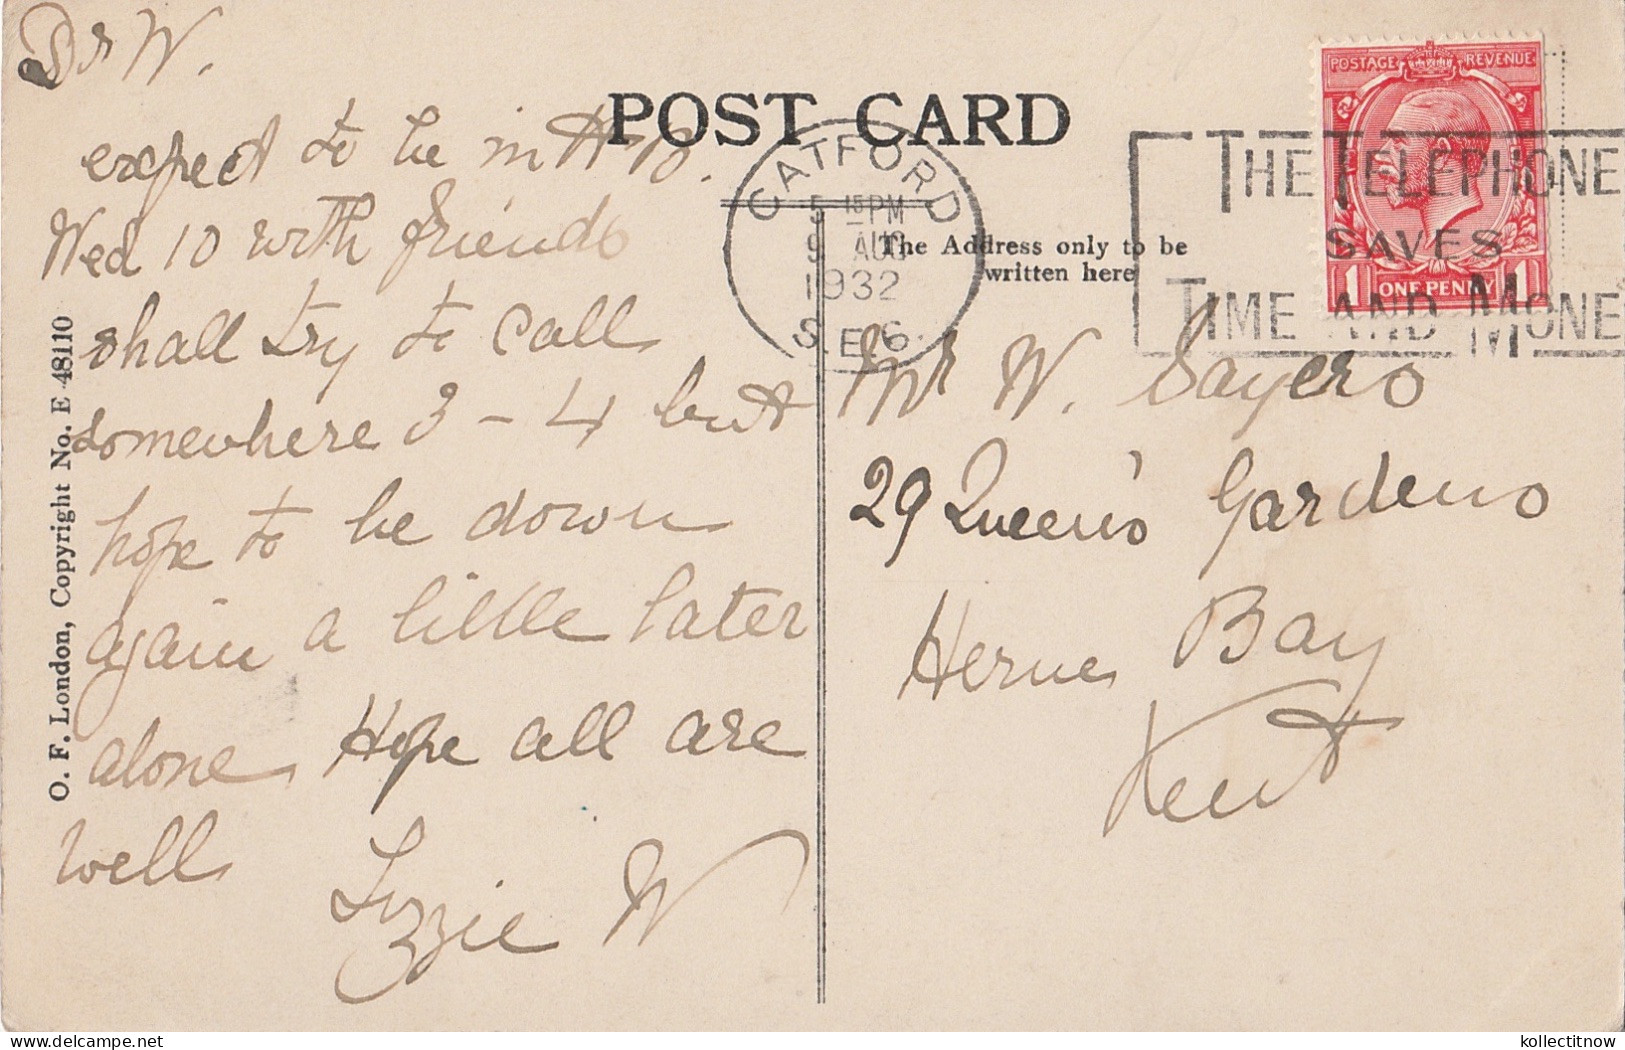 Dr W.
expect to be in H B.
Wed 10 with friends
shall try to call
somewhere 3 - 4 but
hope to be down
again a little later
alone Hope all are
well
Lizzie W
O. F. London, Copyright No. E 48110
POST CARD
The Address only to be
written here
CATFORD
5 15 PM
9 AUG
1932
S.E.6.
THE TELEPHONE
SAVES
TIME AND MONE
POSTAGE REVENUE
1 ONE PENNY 1
Mr W. Sayers
29 Queen's Gardens
Herne Bay
Kent
kollectitnow